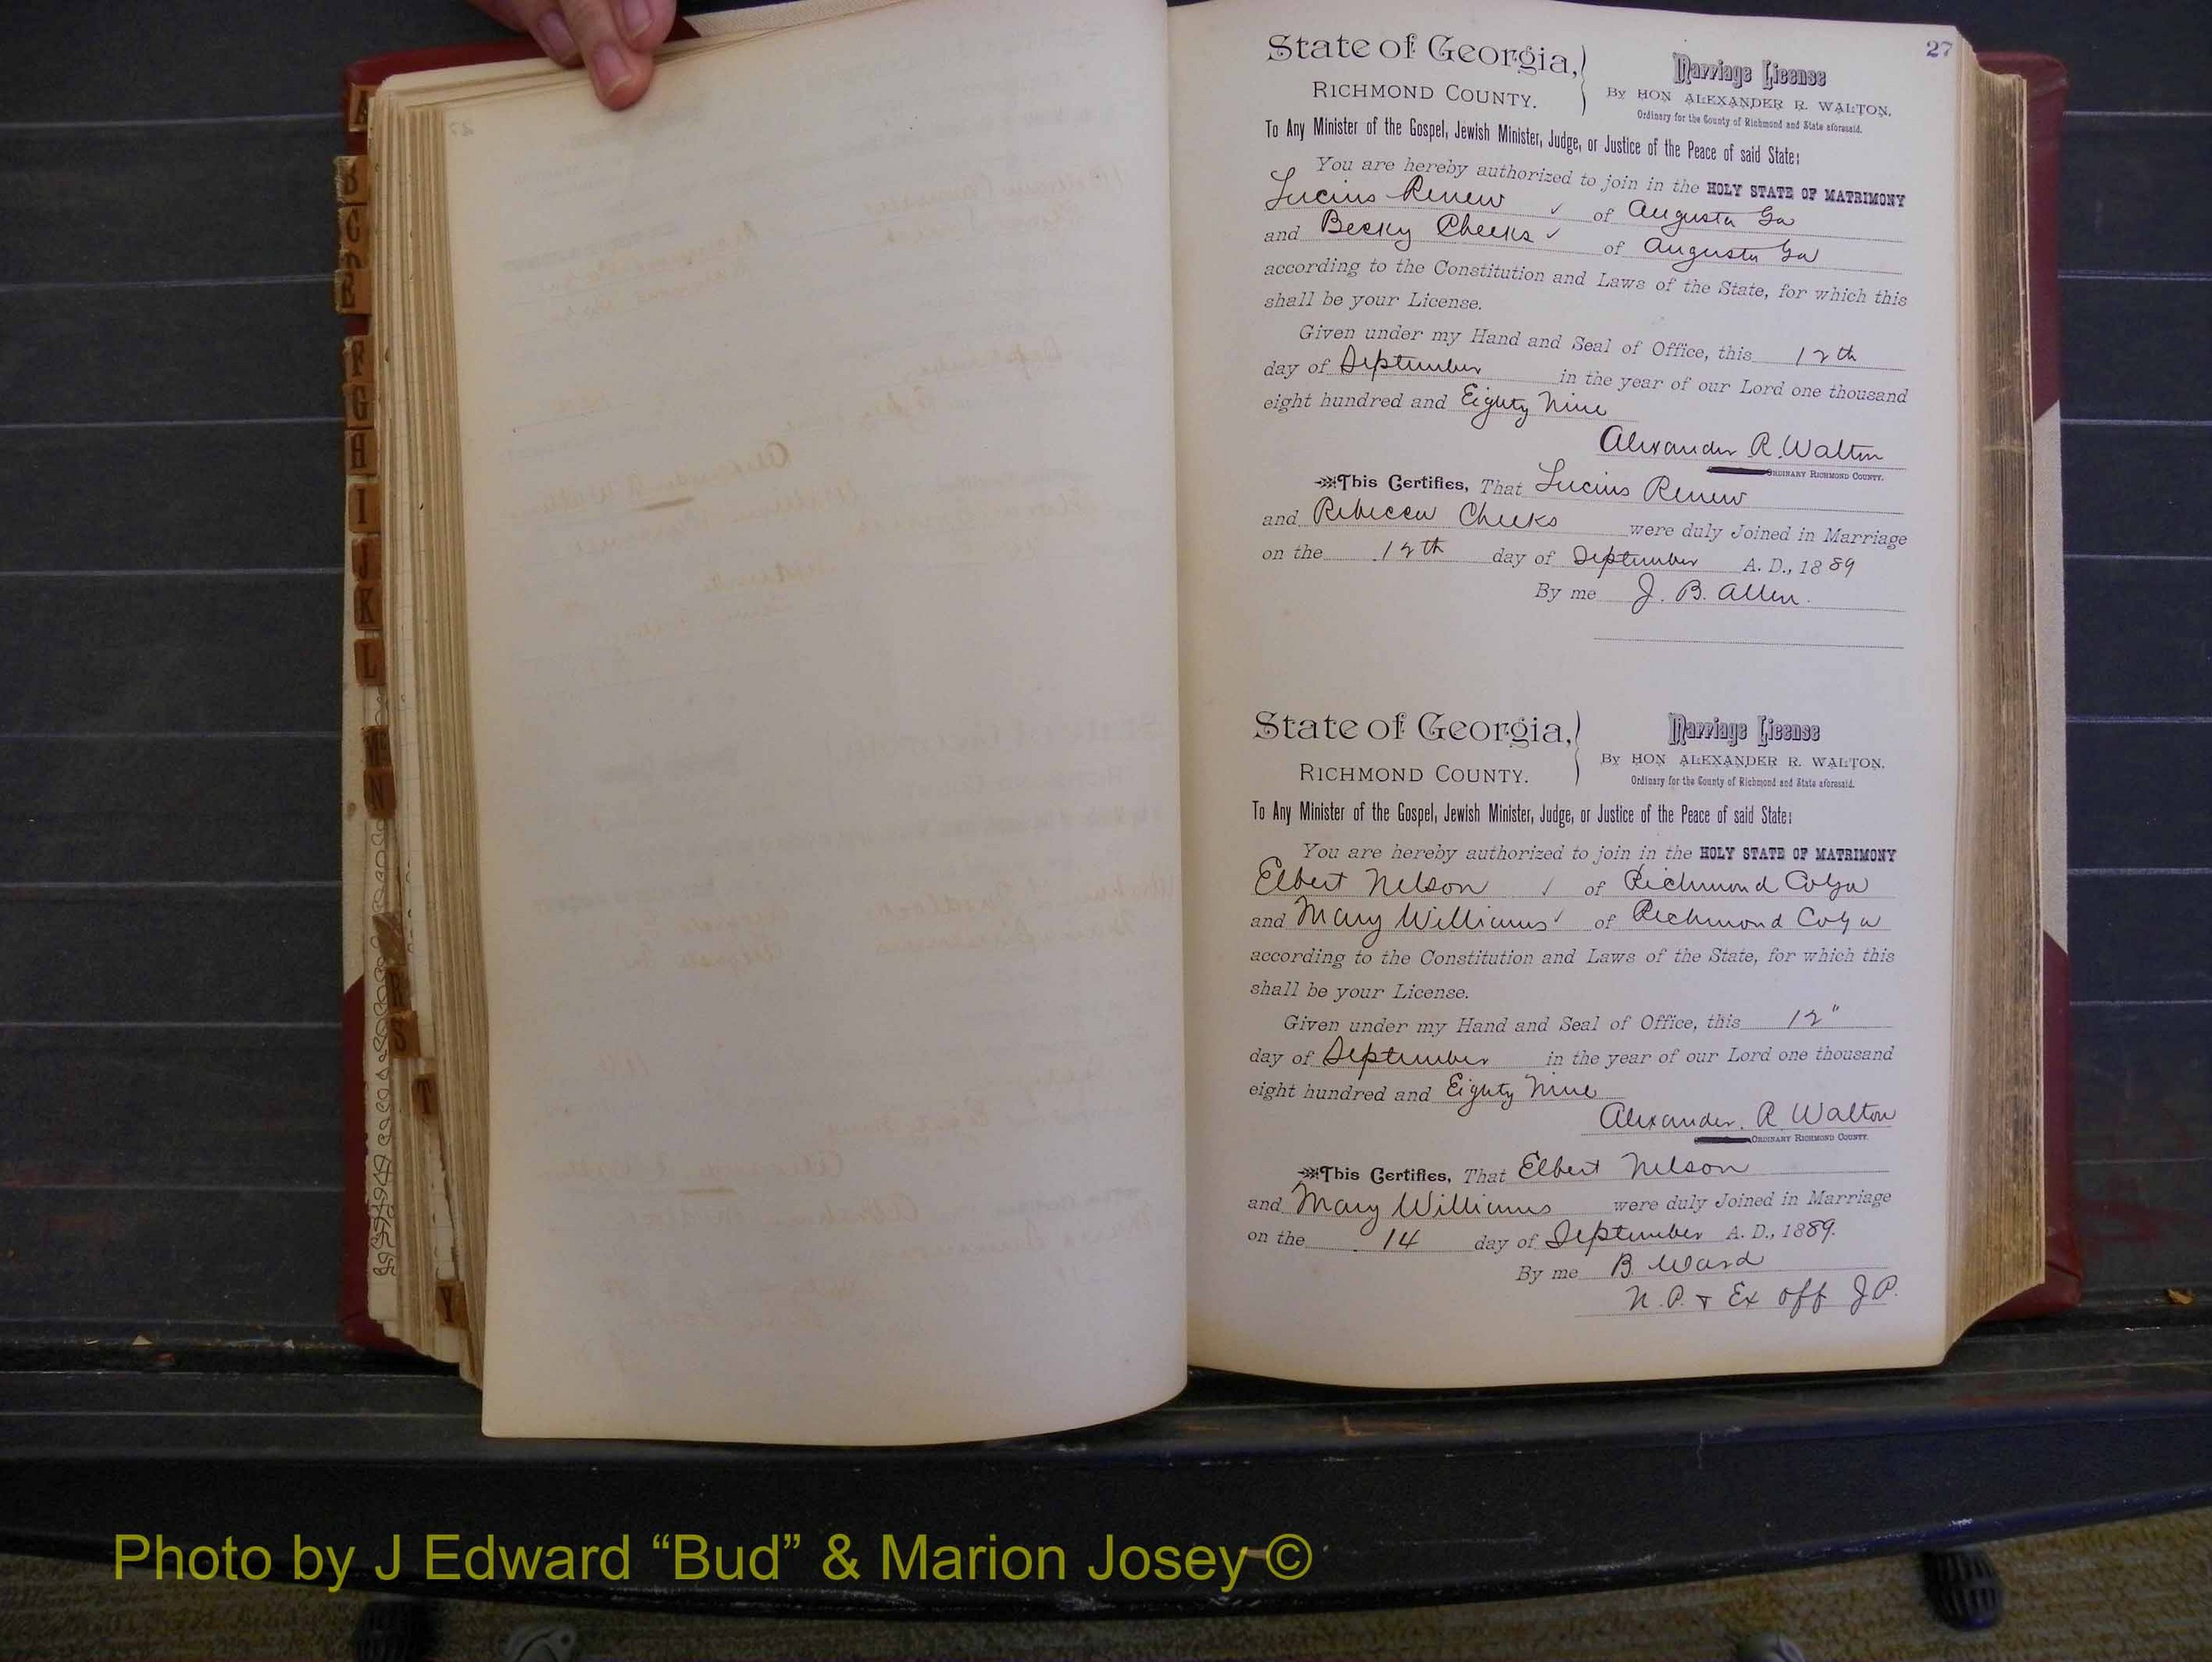 27
State of Georgia,
RICHMOND COUNTY.
Marriage License
By HON ALEXANDER R. WALTON,
Ordinary for the County of Richmond and State aforesaid.
To Any Minister of the Gospel, Jewish Minister, Judge, or Justice of the Peace of said State:
You are hereby authorized to join in the HOLY STATE OF MATRIMONY
Lucius Renew ✓ of Augusta Ga
and Becky Cheeks ✓ of Augusta Ga
according to the Constitution and Laws of the State, for which this
shall be your License.
Given under my Hand and Seal of Office, this 12th
day of September in the year of our Lord one thousand
eight hundred and Eighty Nine
Alexander R. Walton
ORDINARY RICHMOND COUNTY.
This Certifies, That Lucius Renew
and Rebecca Cheeks were duly Joined in Marriage
on the 12th day of September A. D., 1889
By me J. B. Allen.
State of Georgia,
RICHMOND COUNTY.
Marriage License
By HON ALEXANDER R. WALTON,
Ordinary for the County of Richmond and State aforesaid.
To Any Minister of the Gospel, Jewish Minister, Judge, or Justice of the Peace of said State:
You are hereby authorized to join in the HOLY STATE OF MATRIMONY
Elbert Nelson ✓ of Richmond Co Ga
and Mary Williams ✓ of Richmond Co Ga
according to the Constitution and Laws of the State, for which this
shall be your License.
Given under my Hand and Seal of Office, this 12"
day of September in the year of our Lord one thousand
eight hundred and Eighty Nine
Alexander. R. Walton
ORDINARY RICHMOND COUNTY.
This Certifies, That Elbert Nelson
and Mary Williams were duly Joined in Marriage
on the 14 day of September A. D., 1889.
By me B. Ward
N. P. & Ex off J P.
A
B
C
F
G
H
I
J
K
L
N
S
T
Y
Photo by J Edward “Bud” & Marion Josey ©